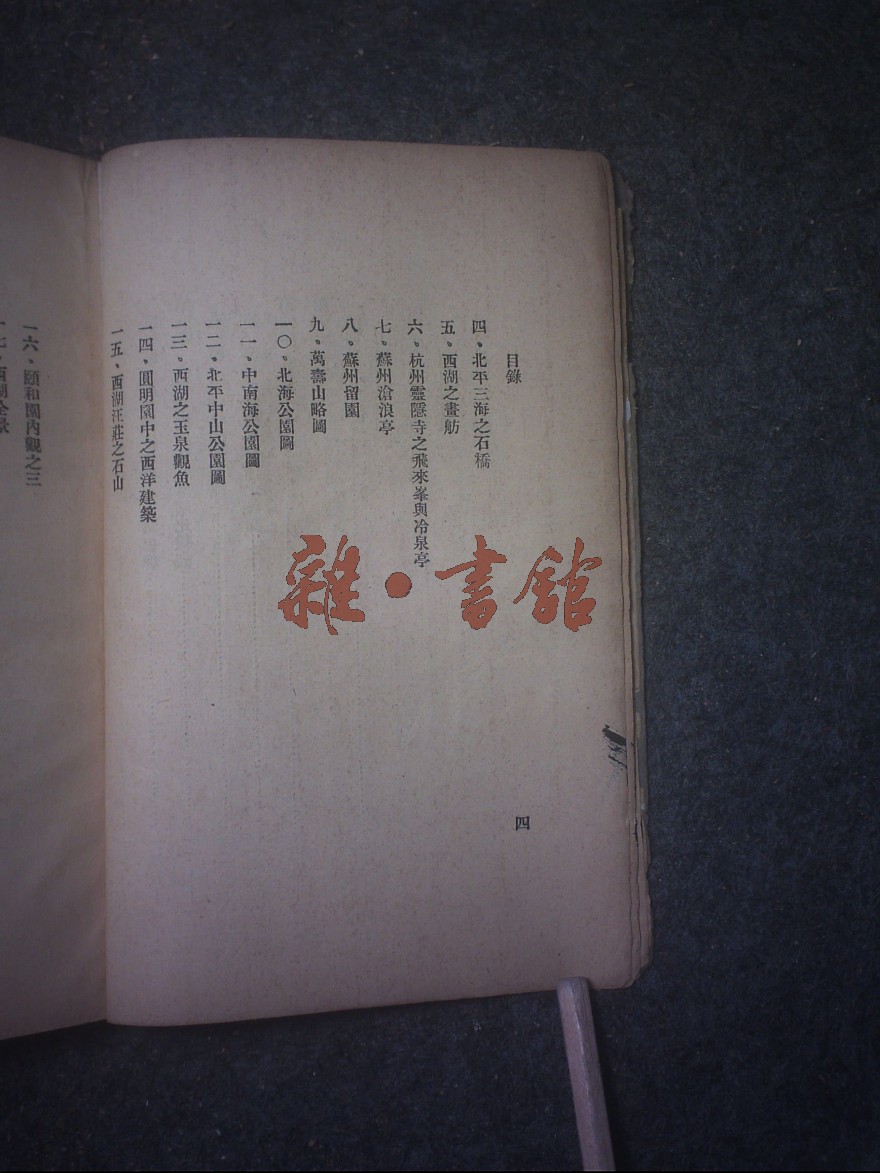 目錄
四、北平三海之石橋
五、西湖之畫舫
六、杭州靈隱寺之飛來峯與冷泉亭
七、蘇州滄浪亭
八、蘇州留園
九、萬壽山略圖
一〇、北海公園圖
一一、中南海公園圖
一二、北平中山公園圖
一三、西湖之玉泉觀魚
一四、圓明園中之西洋建築
一五、西湖汪莊之石山
四
一六、頤和園內觀之三
一七、西湖全景
雜·書館